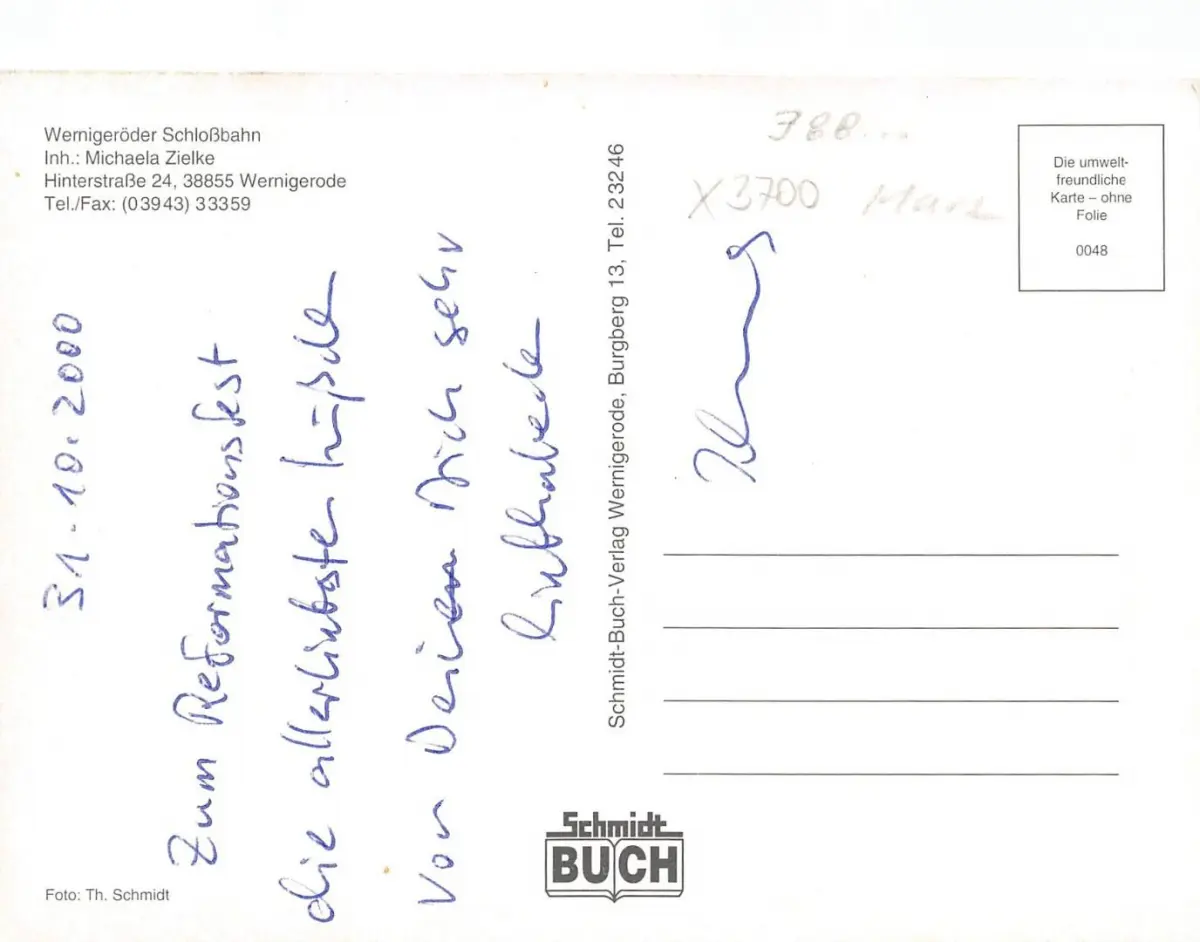 Wernigeröder Schloßbahn
Inh.: Michaela Zielke
Hinterstraße 24, 38855 Wernigerode
Tel./Fax: (03943) 33359
31.10.2000
Zum Reformationsfest
die allerliebsten Küßchen
von Deinem Dich sehr
liebhabenden
Foto: Th. Schmidt
Schmidt-Buch-Verlag Wernigerode, Burgberg 13, Tel. 23246
Schmidt
BUCH
388...
X3700 Harz
Die umwelt-
freundliche
Karte – ohne
Folie
0048